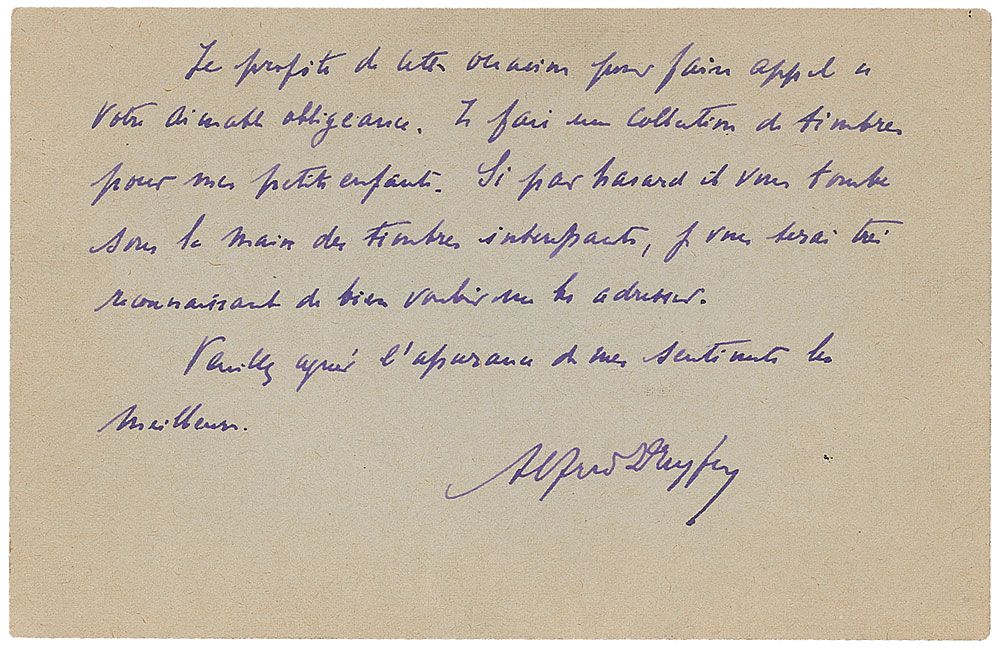 Je profite de cette occasion pour faire appel a
votre aimable obligeance. Je fais une collection de timbres
pour mes petits enfants. Si par hasard il vous tombe
sous la main des timbres intéressants, je vous serai très
reconnaissant de bien vouloir me les adresser.
Veuillez agréer l'assurance de mes sentiments les
meilleurs.
Alfred Dreyfus